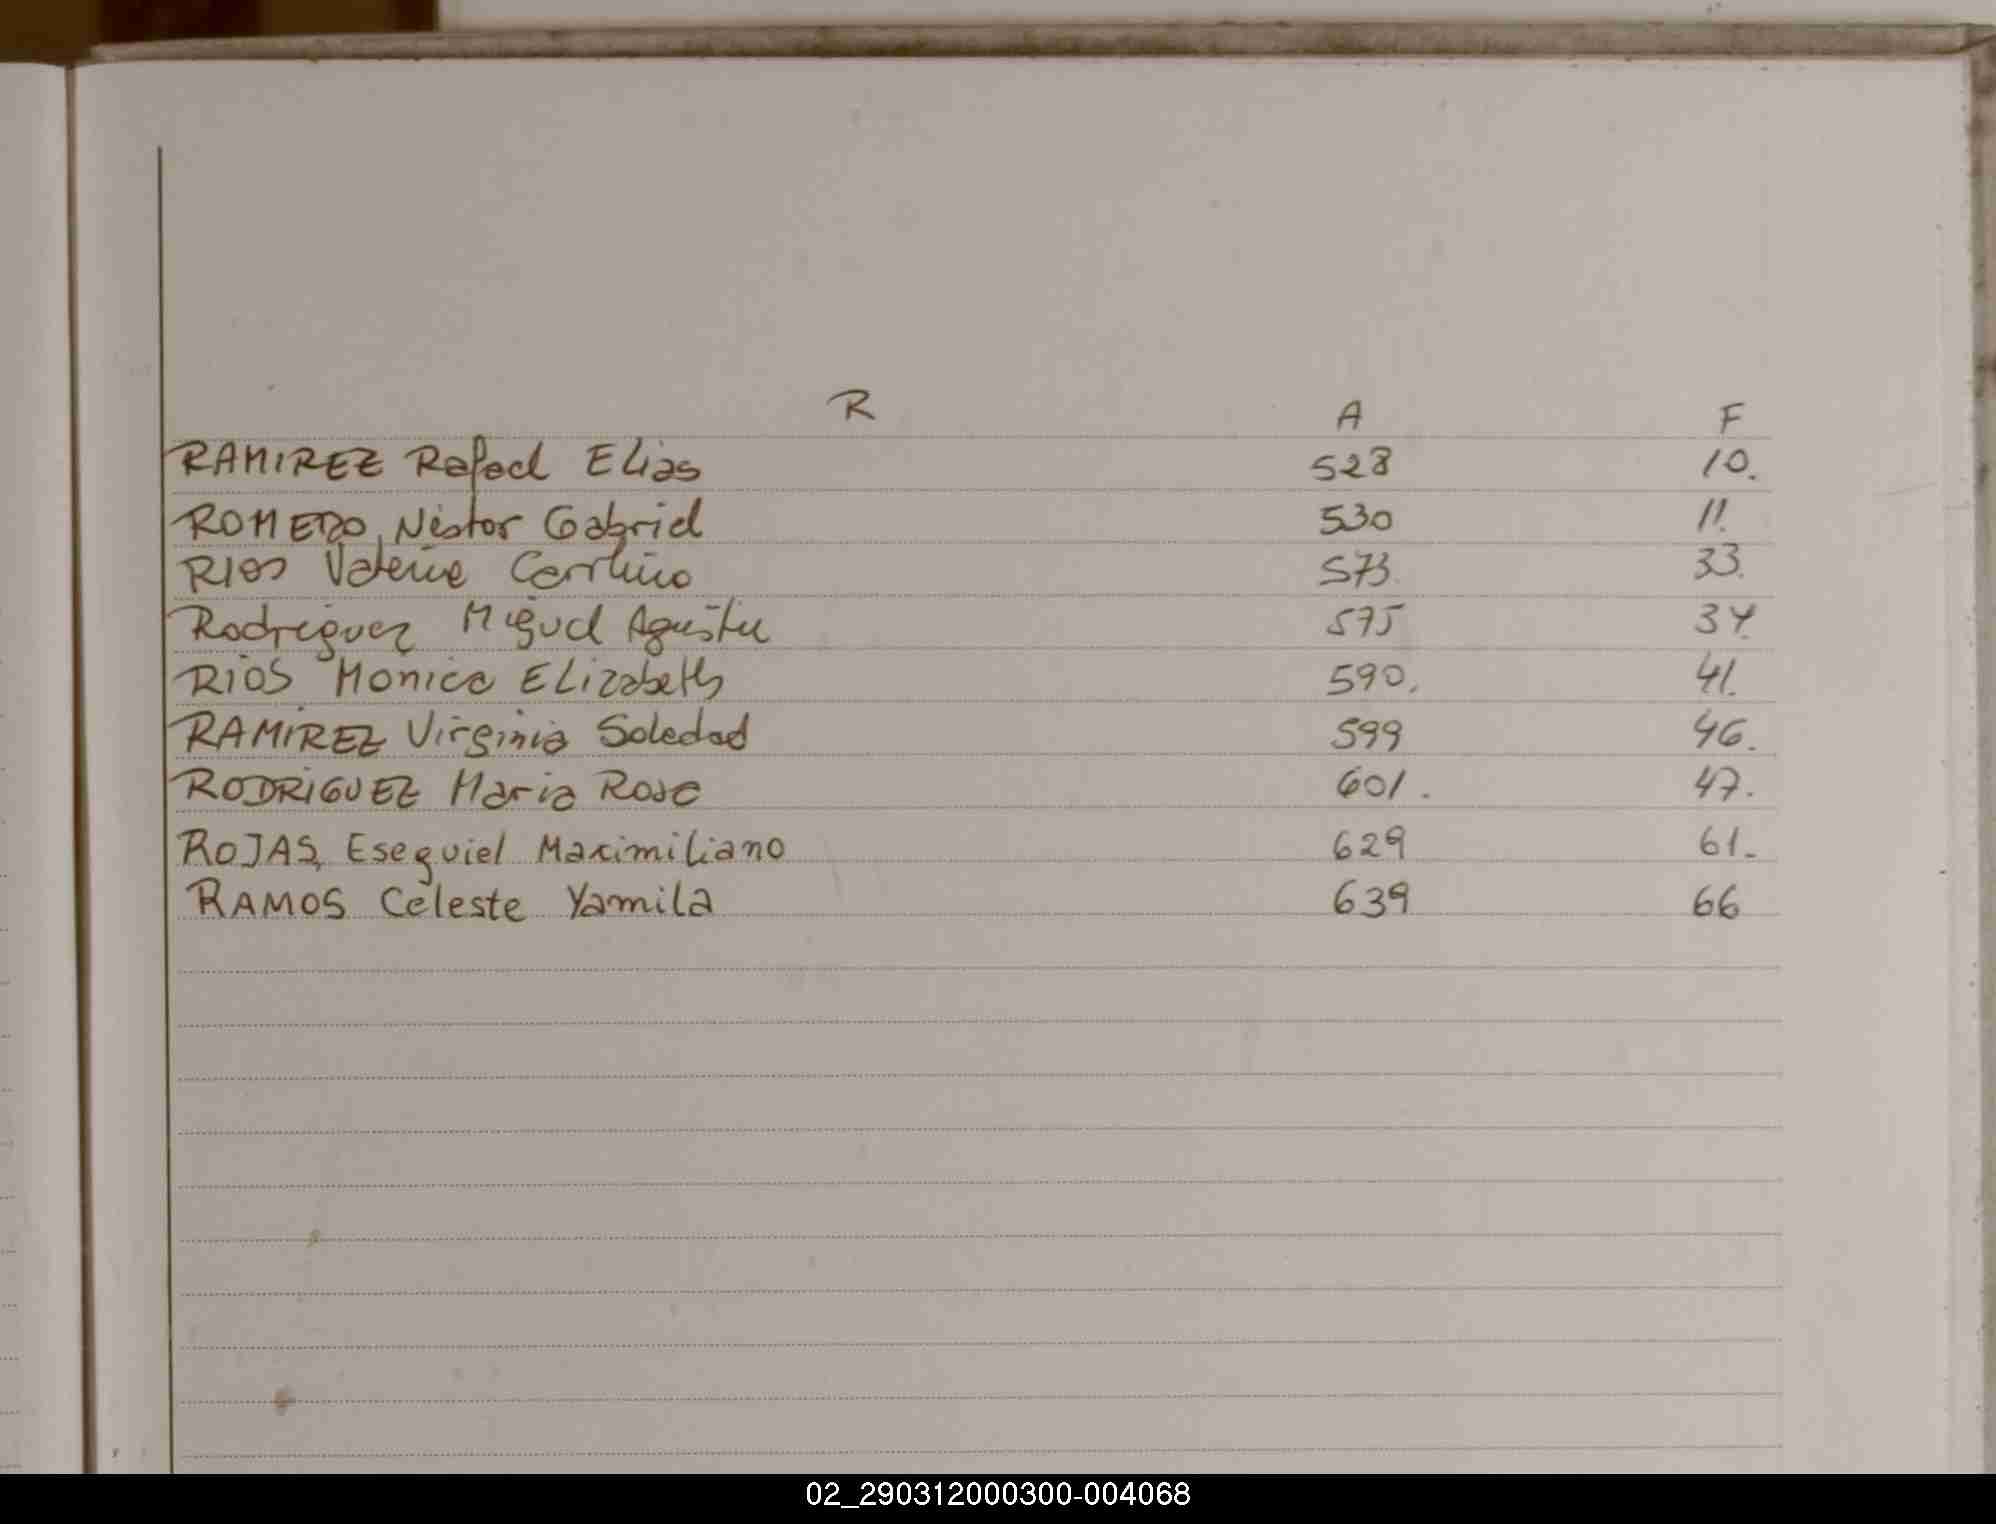 R A F
RAMIREZ Rafael Elias 528 10.
ROMERO, Néstor Gabriel 530 11.
RIOS Valeria 573. 33.
Rodriguez Miguel Agustin 575 34.
RIOS Monica Elizabeth 590. 41.
RAMIREZ Virginia Soledad 599 46.
RODRIGUEZ Maria Rosa 601. 47.
ROJAS, Esequiel Maximiliano 629 61.
RAMOS Celeste Yamila 639 66
02_290312000300-004068